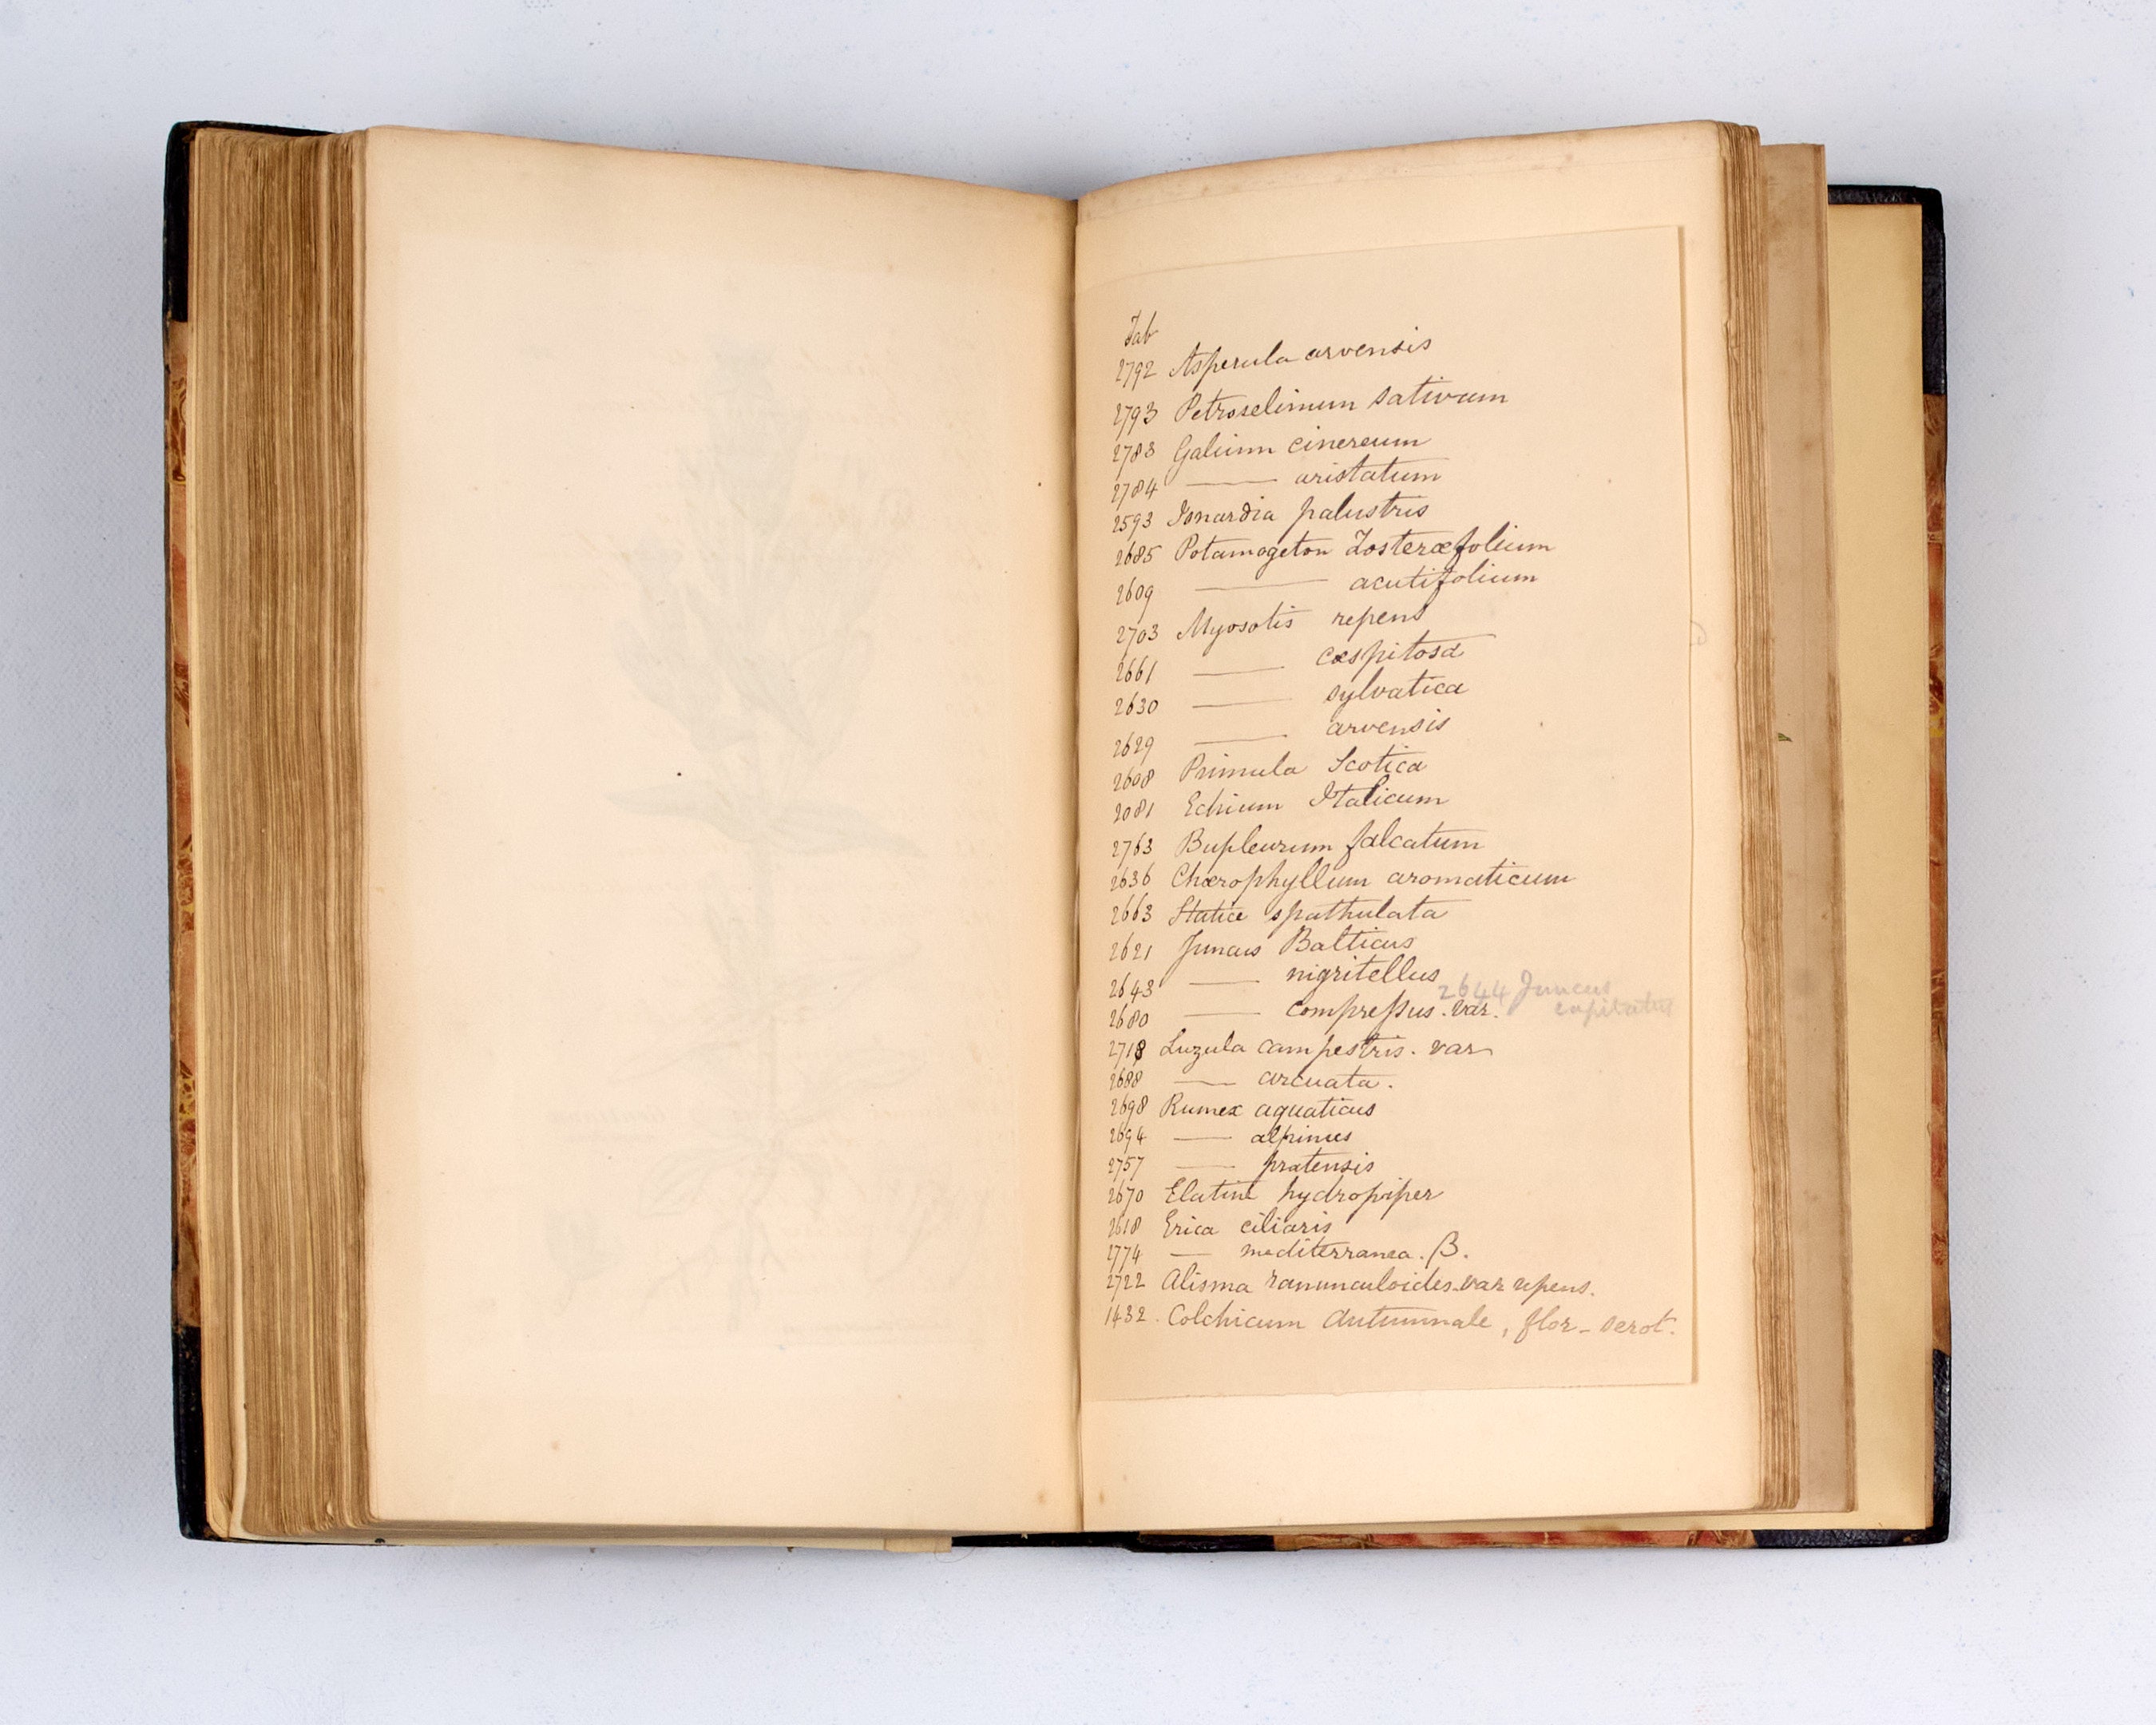 Tab
2792 Asperula arvensis
2793 Petroselinum sativum
2783 Galium cinereum
2784 —— aristatum
2593 Isnardia palustris
2685 Potamogeton Zosteræfolium
2609 —— acutifolium
2703 Myosotis repens
2661 —— cæspitosa
2630 —— sylvatica
2629 —— arvensis
2608 Primula Scotica
2081 Echium Italicum
2763 Bupleurum falcatum
2636 Chærophyllum aromaticum
2663 Statice spathulata
2621 Juncus Balticus
2643 —— nigritellus
2644 Juncus capitatus
2680 —— compreſsus. var.
2718 Luzula campestris. var
2688 —— arcuata.
2698 Rumex aquaticus
2694 —— alpinus
2757 —— pratensis
2670 Elatine hydropiper
2618 Erica ciliaris
2774 — mediterranea. β.
2722 Alisma ranunculoides. var repens.
1432. Colchicum Autumnale, flor- serot.